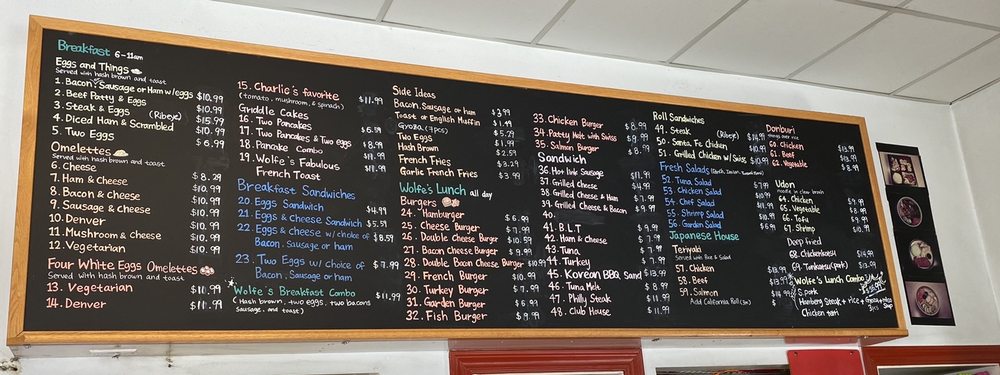 Breakfast 6-11am
Eggs and Things
Served with hash brown and toast
1. Bacon, Sausage or Ham w/eggs $10.99
2. Beef Patty & Eggs $10.99
3. Steak & Eggs (Ribeye) $15.99
4. Diced Ham & Scrambled $10.99
5. Two Eggs $6.99
Omelettes
Served with hash brown and toast
6. Cheese $8.29
7. Ham & cheese $10.99
8. Bacon & cheese $10.99
9. Sausage & cheese $10.99
10. Denver $10.99
11. Mushroom & cheese $10.99
12. Vegetarian $10.99
Four White Eggs Omelettes
Served with hash brown and toast
13. Vegetarian $11.99
14. Denver $11.99
15. Charlie's favorite $11.99
(tomato, mushroom, & spinach)
Griddle Cakes
16. Two Pancakes $6.59
17. Two Pancakes & Two eggs $8.99
18. Pancake Combo $11.99
19. Wolfe's Fabulous $11.99
French Toast
Breakfast Sandwiches
20. Eggs Sandwich $4.99
21. Eggs & cheese Sandwich $5.59
22. Eggs & cheese w/ choice of $8.59
Bacon, Sausage or ham
23. Two Eggs w/ choice of $7.99
Bacon, Sausage or ham
Wolfe's Breakfast Combo $11.99
(Hash brown, two eggs, two bacons
Sausage, and toast)
Side Ideas
Bacon, Sausage or ham $3.99
Toast or English Muffin $1.99
Gyoza (7pcs) $5.29
Two Eggs $1.99
Hash Brown $2.59
French Fries $3.29
Garlic French Fries $3.99
Wolfe's Lunch all day
Burgers
24. Hamburger $6.99
25. Cheese Burger $7.99
26. Double Cheese Burger $10.59
27. Bacon Cheese Burger $9.99
28. Double Bacon Cheese Burger $10.99
29. French Burger $10.99
30. Turkey Burger $7.99
31. Garden Burger $6.99
32. Fish Burger $9.99
33. Chicken Burger $8.99
34. Patty Melt with Swiss $9.99
35. Salmon Burger $8.99
Sandwich
36. Hot link Sausage $11.99
37. Grilled Cheese $4.99
38. Grilled Cheese & Ham $7.99
39. Grilled Cheese & Bacon $9.99
40.
41. B.L.T $9.99
42. Ham & Cheese $7.99
43. Tuna $7.99
44. Turkey $7.99
45. Korean BBQ Sand $13.99
46. Tuna Melt $8.99
47. Philly Steak $11.99
48. Club House $11.99
Roll Sandwiches
49. Steak (Ribeye)
50. Santa Fe Chicken
51. Grilled Chicken w/ Swiss
Fresh Salads
52. Tuna Salad $7.99
53. Chicken Salad
54. Chef Salad
55. Shrimp Salad
56. Garden Salad
Japanese House
Teriyaki
Served with Rice & Salad
57. Chicken $13.99
58. Beef $13.99
59. Salmon $14.99
Add California Roll
Donburi
60. Chicken $13.99
61. Beef $13.99
62. Vegetable $8.99
Udon
noodle in clear broth
64. Chicken $9.99
65. Vegetable $8.99
66. Tofu $9.99
67. Shrimp $10.99
Deep fried
68. Chickenkatsu $14.99
69. Tonkatsu (pork) $13.99
Wolfe's Lunch Combo
S. pork
Hamberg Steak + rice +
Chicken